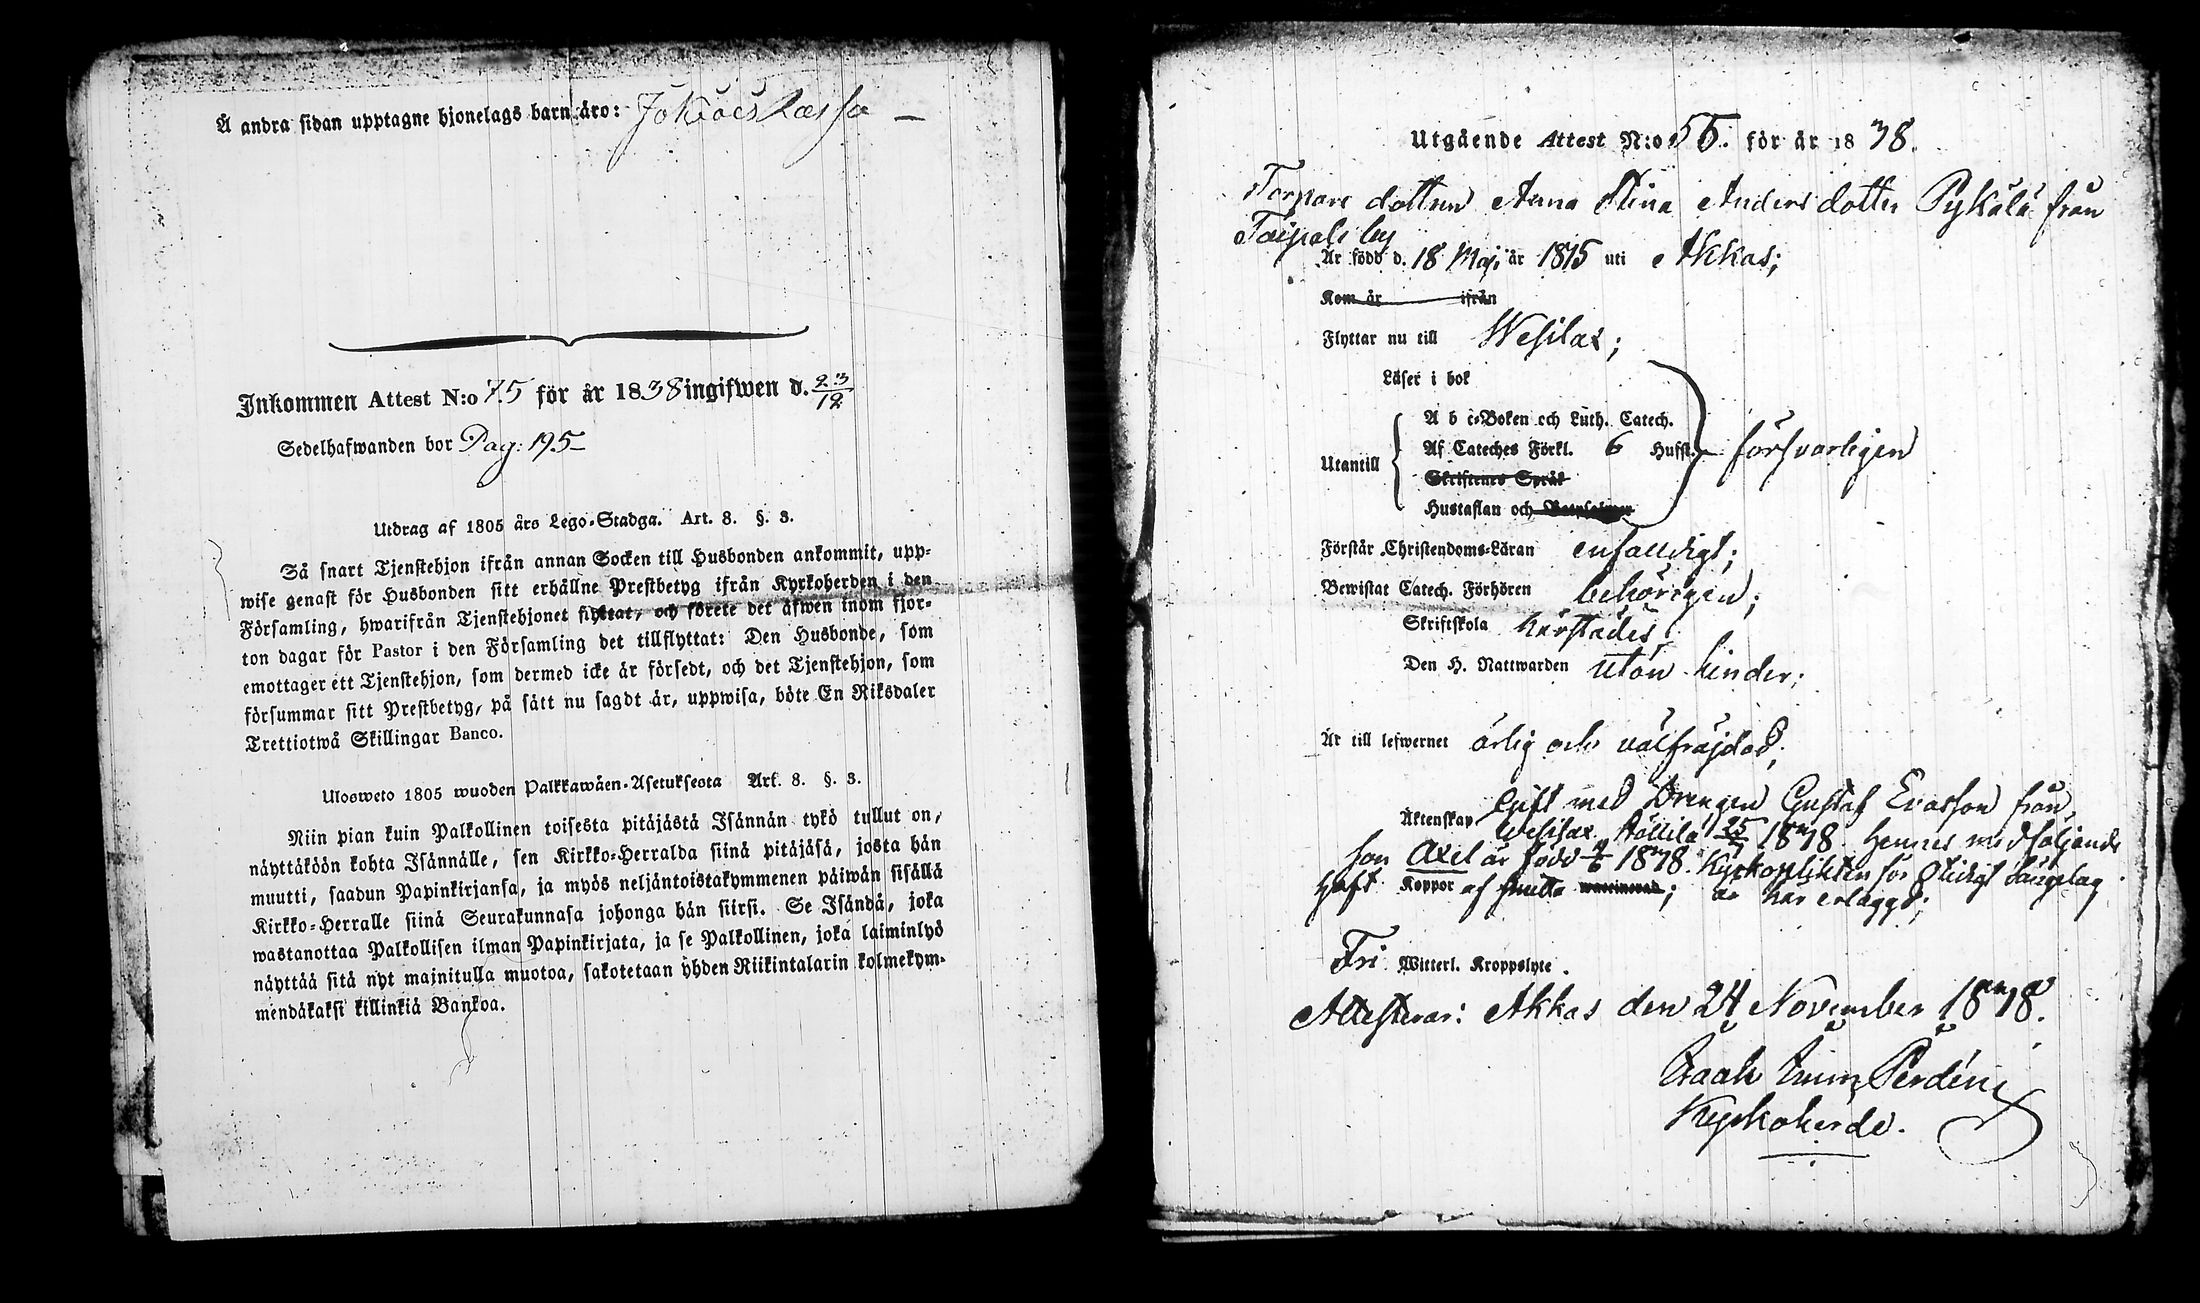 Å andra sidan upptagne hjonelags barn äro:
Inkommen Attest N:o 75 för år 1838 ingifwen d. 23/12
Sedelhafwanden bor Pag: 195 –
Utdrag af 1805 års Lego-Stadga. Art. 8. §. 3.
Så snart Tjenstehjon ifrån annan Socken till Husbonden ankommit, upp-
wise genast för Husbonden sitt erhållne Prestbetyg ifrån Kyrkoherden i den
Församling, hwarifrån Tjenstehjonet flyttat, och förete det äfwen inom fjor-
ton dagar för Pastor i den Församling det tillflyttat: Den Husbonde, som
emottager ett Tjenstehjon, som dermed icke är försedt, och det Tjenstehjon, som
försummar sitt Prestbetyg, på sätt nu sagdt är, uppwisa, böte En Riksdaler
Trettiotwå Skillingar Banco.
Ulosweto 1805 wuoden Palkkawäen-Asetuksesta Art. 8. §. 3.
Niin pian kuin Palkollinen toisesta pitäjästä Isännän tykö tullut on,
näyttäköön kohta Isännälle, sen Kirkko-Herralda siinä pitäjäsä, josta hän
muutti, saadun Papinkirjansa, ja myös neljäntoistakymmenen päiwän sisällä
Kirkko-Herralle siinä Seurakunnasa johonga hän siirsi. Se Isändä, joka
wastanottaa Palkollisen ilman Papinkirjata, ja se Palkollinen, joka laiminlyö
näyttää sitä nyt mainitulla muotoa, sakotetaan yhden Riikintalarin kolmekym-
mendäkaksi killinkiä Bankoa.
Utgående Attest N:o 55. för år 1838.
Torpare dottren Anna Stina Anders dotter Pykälä från
Taipale by
Är född d. 18 Maji år 1815 uti Akkas;
Kom år ifrån
Flyttar nu till Wesilax;
Läser i bok
A b c-Boken och Luth. Catech.
Af Cateches Förkl. 6 Hufst. försvarligen
Utantill
Skriftenes Språk
Hustaflan och
Förstår Christendoms-Läran enfalldigt;
Bewistat Catech. Förhören behörigen;
Skriftskola härstädes;
Den H. Nattwarden utan hinder;
Är till lefwernet ärlig och välfräjdad;
Gift med Drengen Gustaf Ersson från
Äktenskap Wesilax 25 1838. Hennes medföljande
son Axel är född 1838. Kyrkoplikten för Otidigt Sängelag
haft Koppor af waccinerad; är här erlaggd;
Fri Witterl. Kroppslyte.
Attesterar: Akkas den 24 November 1838.
Kyrkoherde.